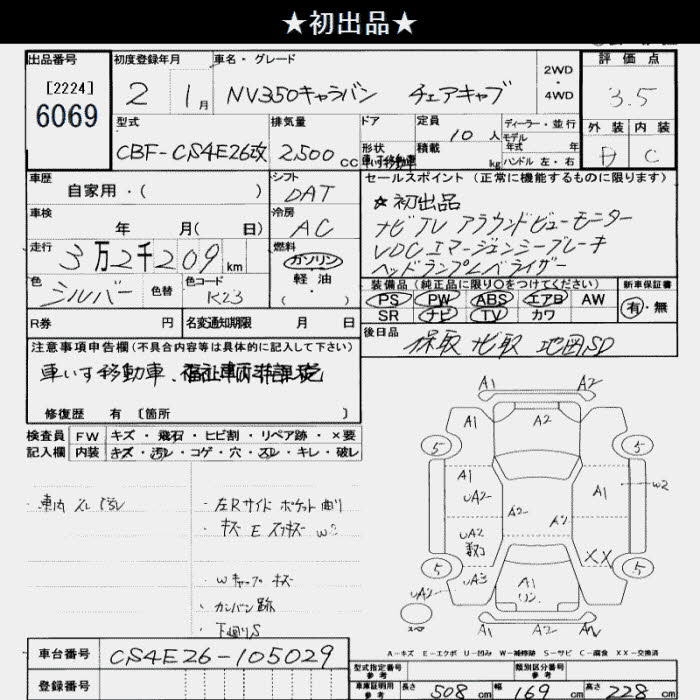 ★初出品★
出品番号
[2224]
6069
初度登録年月
2 1月
車名・グレード
NV350キャラバン チェアキャブ
2WD
・
4WD
評価点
3.5
外装 内装
D C
型式
CBF-CS4E26改
排気量
2,500 CC
ドア
形状
車いす移動車
定員
10人
積載
kg
ディーラー・並行
モデル
年式 年
ハンドル 左・右
車歴
自家用・( )
シフト
DAT
車検
年 月( 日)
冷房
AC
走行
3万2千209km
燃料
ガソリン
軽油
( )
色
シルバー
色替
色コード
K23
R券 円
名変通知期限 月 日
セールスポイント (正常に機能するものに限ります)
☆初出品
ナビTV アラウンドビューモニター
VDC エマージェンシーブレーキ
ヘッドランプレベライザー
装備品(純正品に限り○をつけてください)
PS PW ABS エアB AW
SR ナビ TV カワ
新車保証書
有・無
後日品
保取 ナビ取 地図SD
注意事項申告欄(不具合内容等は具体的に記入して下さい)
車いす移動車、福祉車両非課税
修復歴 有 [箇所 ]
検査員
記入欄
FW キズ・飛石・ヒビ割・リペア跡・×要
内装 キズ・汚レ・コゲ・穴・スレ・キレ・破レ
車内 スレ 汚レ
・左Rサイド ポケット 曲り
・キズ E スリキズ W2
・Wキャップ キズ
・カンバン跡
・下廻りS
A1 A2
A1 A2 A1
5 5
A1 UA2 A1 W2
A2 A2
UA2
数コ
XX
5 5
UA3 A1
リン
UA2
A1 A2 A2
A-キズ E-エクボ U-凹み W-補修跡 S-サビ C-腐食 XX-交換済
車台番号
CS4E26-105029
登録番号
型式指定番号
参考
類別区分番号
参考
車庫証明用
参考
長さ 508 cm 幅 169 cm 高さ 228 cm